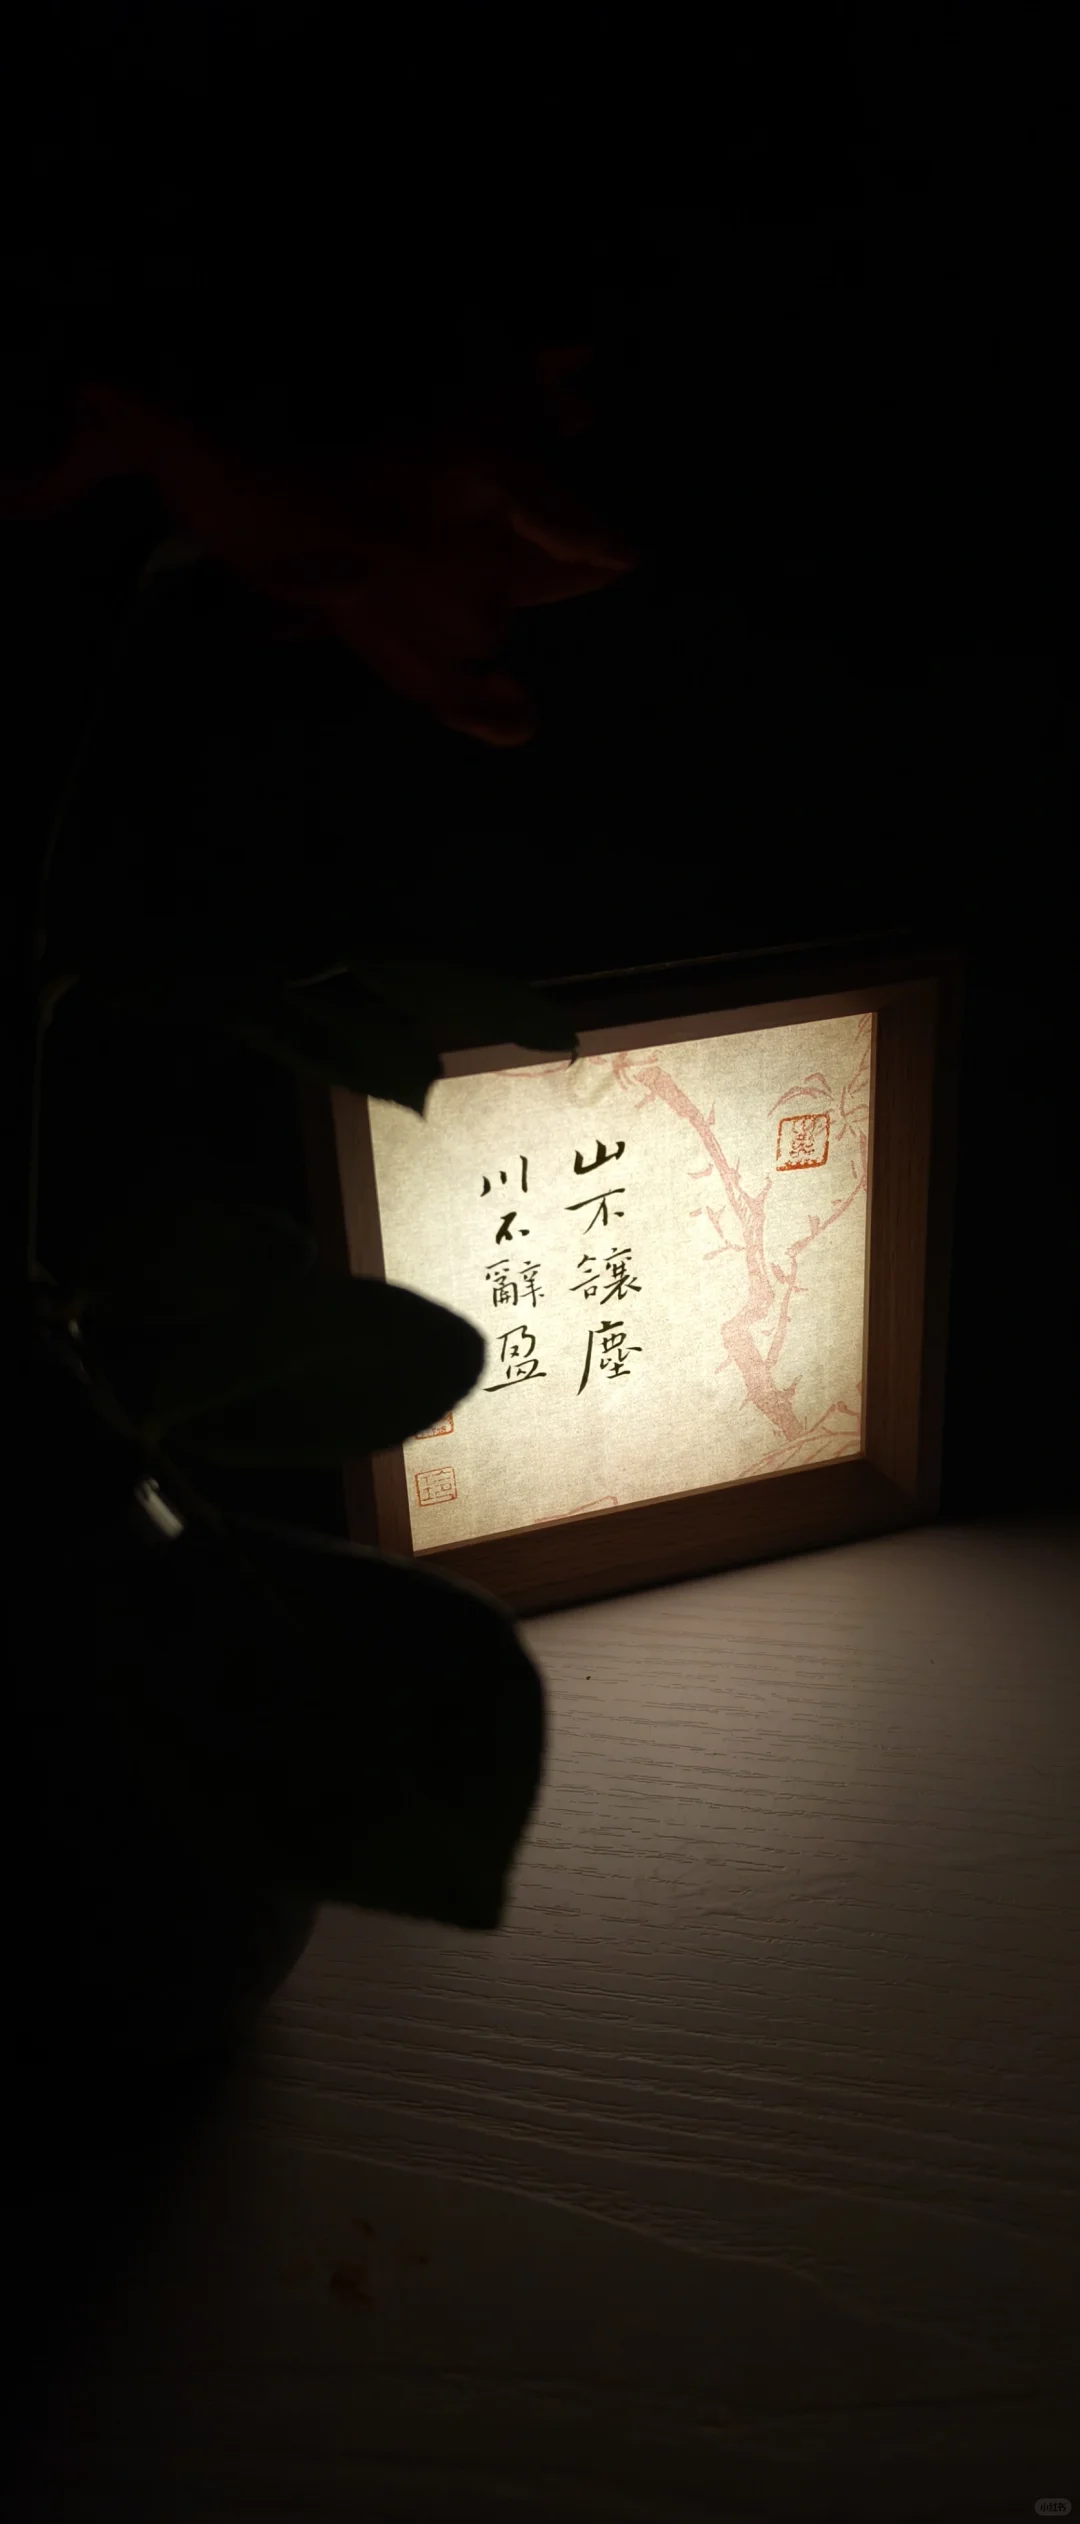 山不讓塵
川不辭盈
小红书